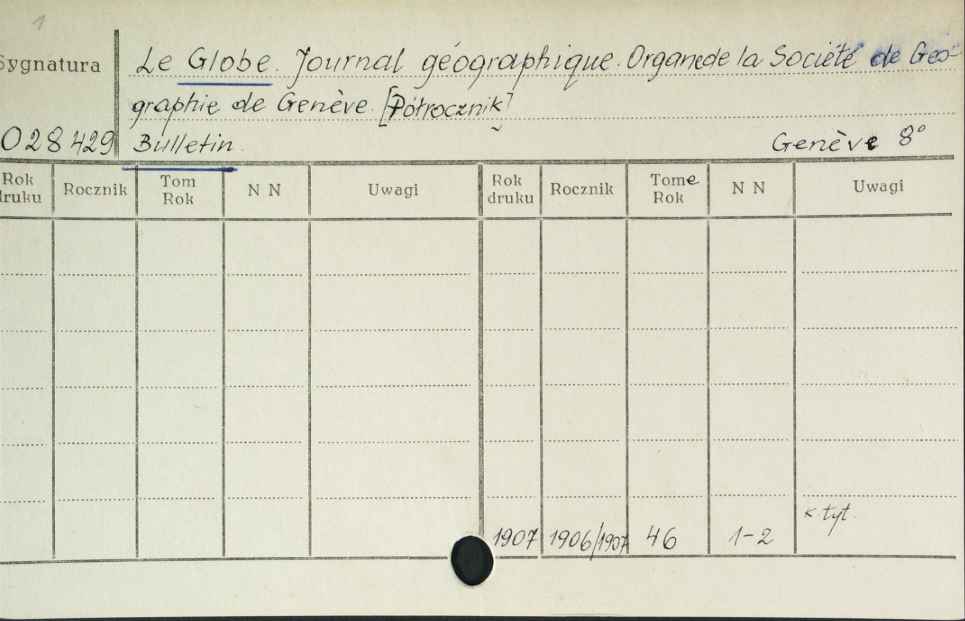 1
Sygnatura Le Globe. Journal géographique. Organe de la Société de Géo-
graphie de Genève. [Półrocznik]
028429 Bulletin. Genève 8°
Rok druku Rocznik Tom Rok N N Uwagi Rok druku Rocznik Tome Rok N N Uwagi
1907 1906/1907 46 1-2 k. tyt.